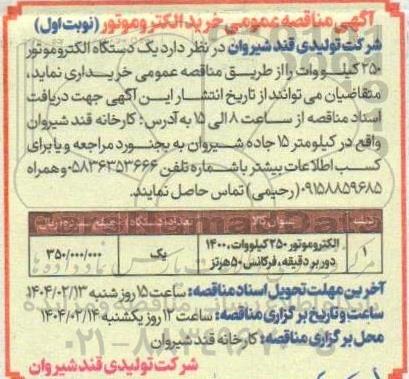 آگهی مناقصه عمومی خرید الکتروموتور (نوبت اول)
شرکت تولیدی قند شیروان در نظر دارد یک دستگاه الکتروموتور
۲۵۰ کیلووات را از طریق مناقصه عمومی خریداری نماید،
متقاضیان می توانند از تاریخ انتشار این آگهی جهت دریافت
اسناد مناقصه از ساعت ۸ الی ۱۵ به آدرس: کارخانه قند شیروان
واقع در کیلومتر ۱۵ جاده شیروان به بجنورد مراجعه و یا برای
کسب اطلاعات بیشتر با شماره تلفن ۰۵۸۳۶۳۵۳۶۶۶ و همراه
۰۹۱۵۸۸۵۹۶۸۵ (رحیمی) تماس حاصل نمایند.
ردیف عنوان کالا تعداد دستگاه
۱ الکتروموتور ۲۵۰ کیلووات، ۱۴۰۰ یک ۳۵۰/۰۰۰/۰۰۰
دور بر دقیقه، فرکانس ۵۰ هرتز
آخرین مهلت تحویل اسناد مناقصه: ساعت ۱۵ روز شنبه ۱۴۰۴/۰۲/۱۳
ساعت و تاریخ برگزاری مناقصه: ساعت ۱۲ روز یکشنبه ۱۴۰۴/۰۲/۱۴
محل برگزاری مناقصه: کارخانه قند شیروان
شرکت تولیدی قند شیروان